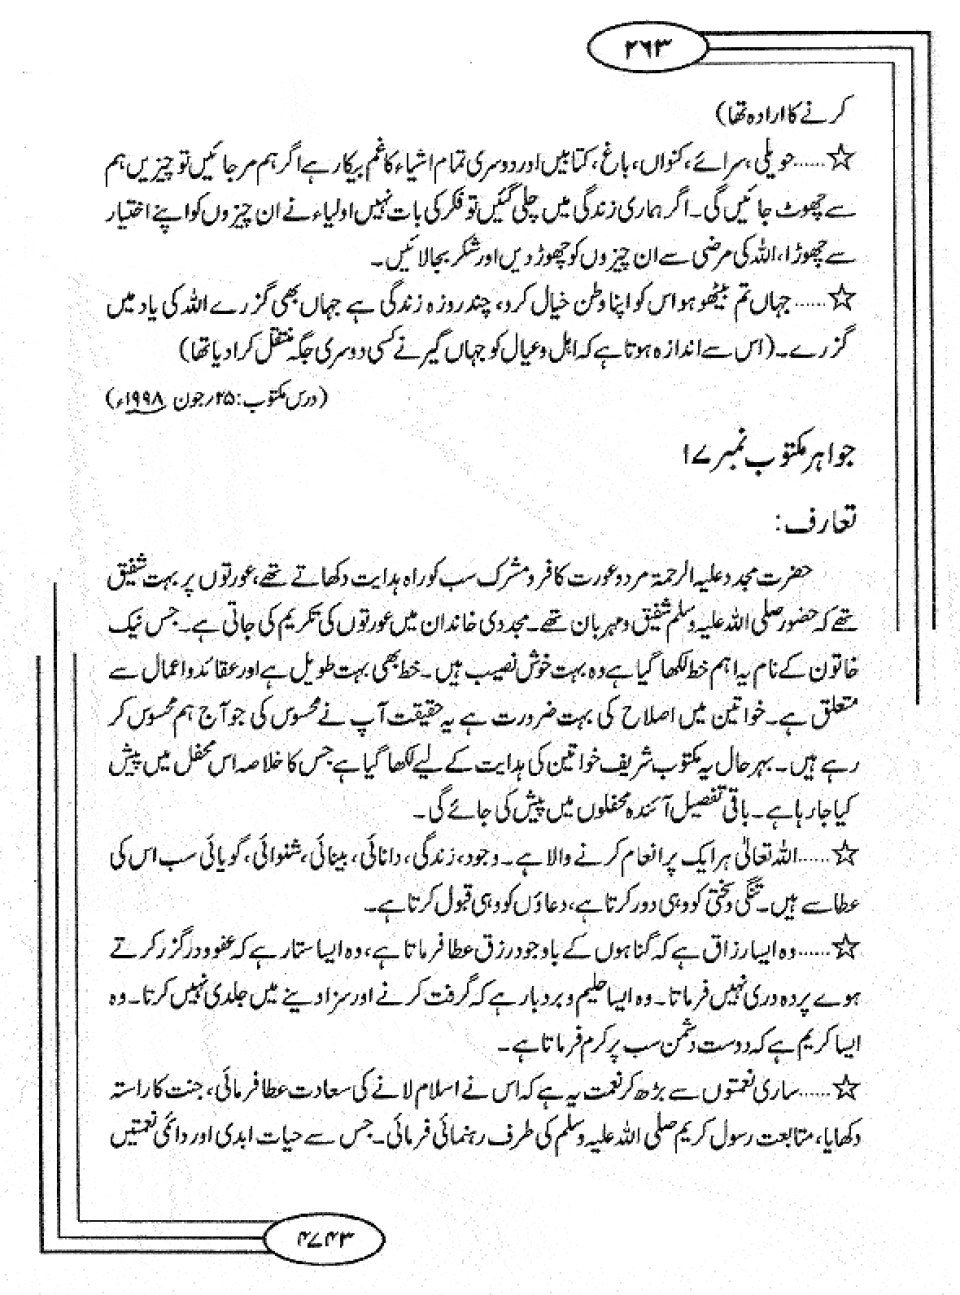 ۲۶۳
کرنے کا ارادہ تھا)
☆.....حویلی، سرائے، کنواں، باغ، کتابیں اور دوسری تمام اشیاء کا غم بیکار ہے اگر ہم مر جائیں تو چیزیں ہم
سے چھوٹ جائیں گی۔ اگر ہماری زندگی میں چلی گئیں تو فکر کی بات نہیں اولیاء نے ان چیزوں کو اپنے اختیار
سے چھوڑا، اللہ کی مرضی سے ان چیزوں کو چھوڑ دیں اور شکر بجا لائیں۔
☆.....جہاں تم بیٹھو ہو اس کو اپنا وطن خیال کرو، چند روزہ زندگی ہے جہاں بھی گزرے اللہ کی یاد میں
گزرے۔ (اس سے اندازہ ہوتا ہے کہ اہل و عیال کو جہاں گیر نے کسی دوسری جگہ منتقل کرا دیا تھا)
(درس مکتوب: ۲۵/ جون ۱۹۹۸ء)
جواہر مکتوب نمبر ۱۷
تعارف:
حضرت مجدد علیہ الرحمۃ مرد و عورت کافر و مشرک سب کو راہ ہدایت دکھاتے تھے، عورتوں پر بہت شفیق
تھے کہ حضور صلی اللہ علیہ وسلم شفیق و مہربان تھے۔ مجددی خاندان میں عورتوں کی تکریم کی جاتی ہے۔ جس نیک
خاتون کے نام یہ اہم خط لکھا گیا ہے وہ بہت خوش نصیب ہیں۔ خط بھی بہت طویل ہے اور عقائد و اعمال سے
متعلق ہے۔ خواتین میں اصلاح کی بہت ضرورت ہے یہ حقیقت آپ نے محسوس کی جو آج ہم محسوس کر
رہے ہیں۔ بہر حال یہ مکتوب شریف خواتین کی ہدایت کے لیے لکھا گیا ہے جس کا خلاصہ اس محفل میں پیش
کیا جا رہا ہے۔ باقی تفصیل آئندہ محفلوں میں پیش کی جائے گی۔
☆......اللہ تعالیٰ ہر ایک پر انعام کرنے والا ہے۔ وجود، زندگی، دانائی، بینائی، شنوائی، گویائی سب اس کی
عطا سے ہیں۔ تنگی و سختی کو وہی دور کرتا ہے، دعاؤں کو وہی قبول کرتا ہے۔
☆......وہ ایسا رزاق ہے کہ گناہوں کے باوجود رزق عطا فرماتا ہے، وہ ایسا ستار ہے کہ عفو و درگزر کرتے
ہوے پردہ دری نہیں فرماتا۔ وہ ایسا حلیم و بردبار ہے کہ گرفت کرنے اور سزا دینے میں جلدی نہیں کرتا۔ وہ
ایسا کریم ہے کہ دوست دشمن سب پر کرم فرماتا ہے۔
☆......ساری نعمتوں سے بڑھ کر نعمت یہ ہے کہ اس نے اسلام لانے کی سعادت عطا فرمائی، جنت کا راستہ
دکھایا، متابعت رسول کریم صلی اللہ علیہ وسلم کی طرف رہنمائی فرمائی۔ جس سے حیات ابدی اور دائمی نعمتیں